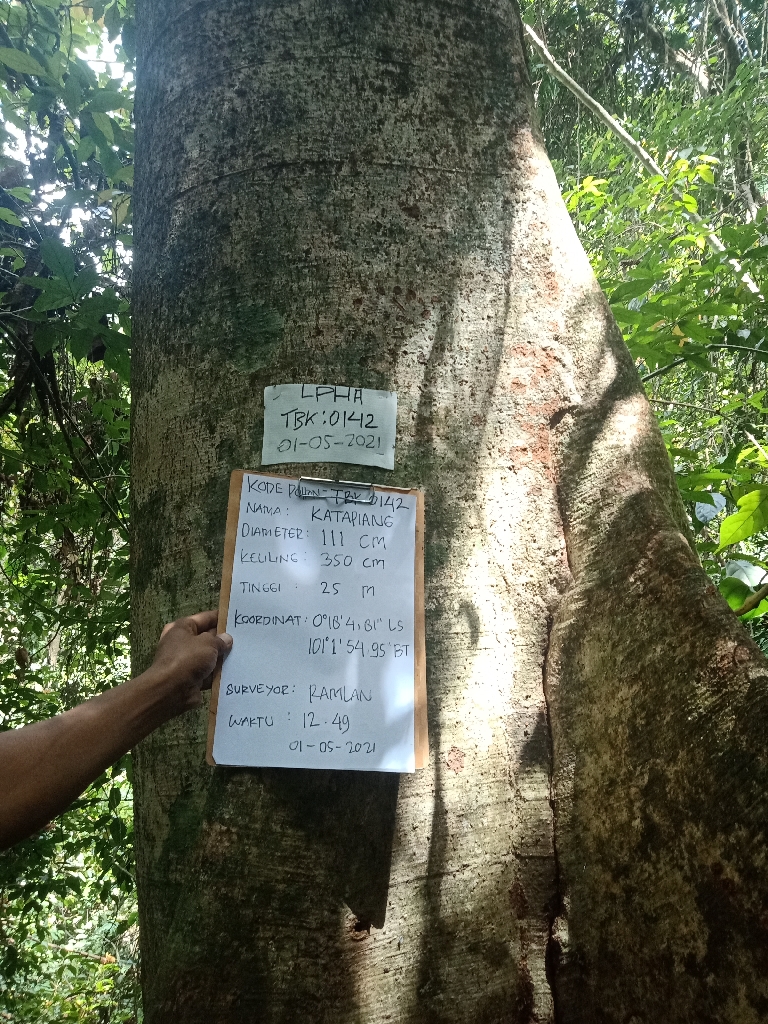 LPHA
TBK:0142
01-05-2021
KODE POHON: TBK 0142
NAMA: KATAPIANG
DIAMETER: 111 CM
KELILING: 350 cm
TINGGI : 25 m
KOORDINAT: 0°18'4,81" LS
101°1'54.95"BT
SURVEYOR: RAMLAN
WAKTU : 12.49
01-05-2021